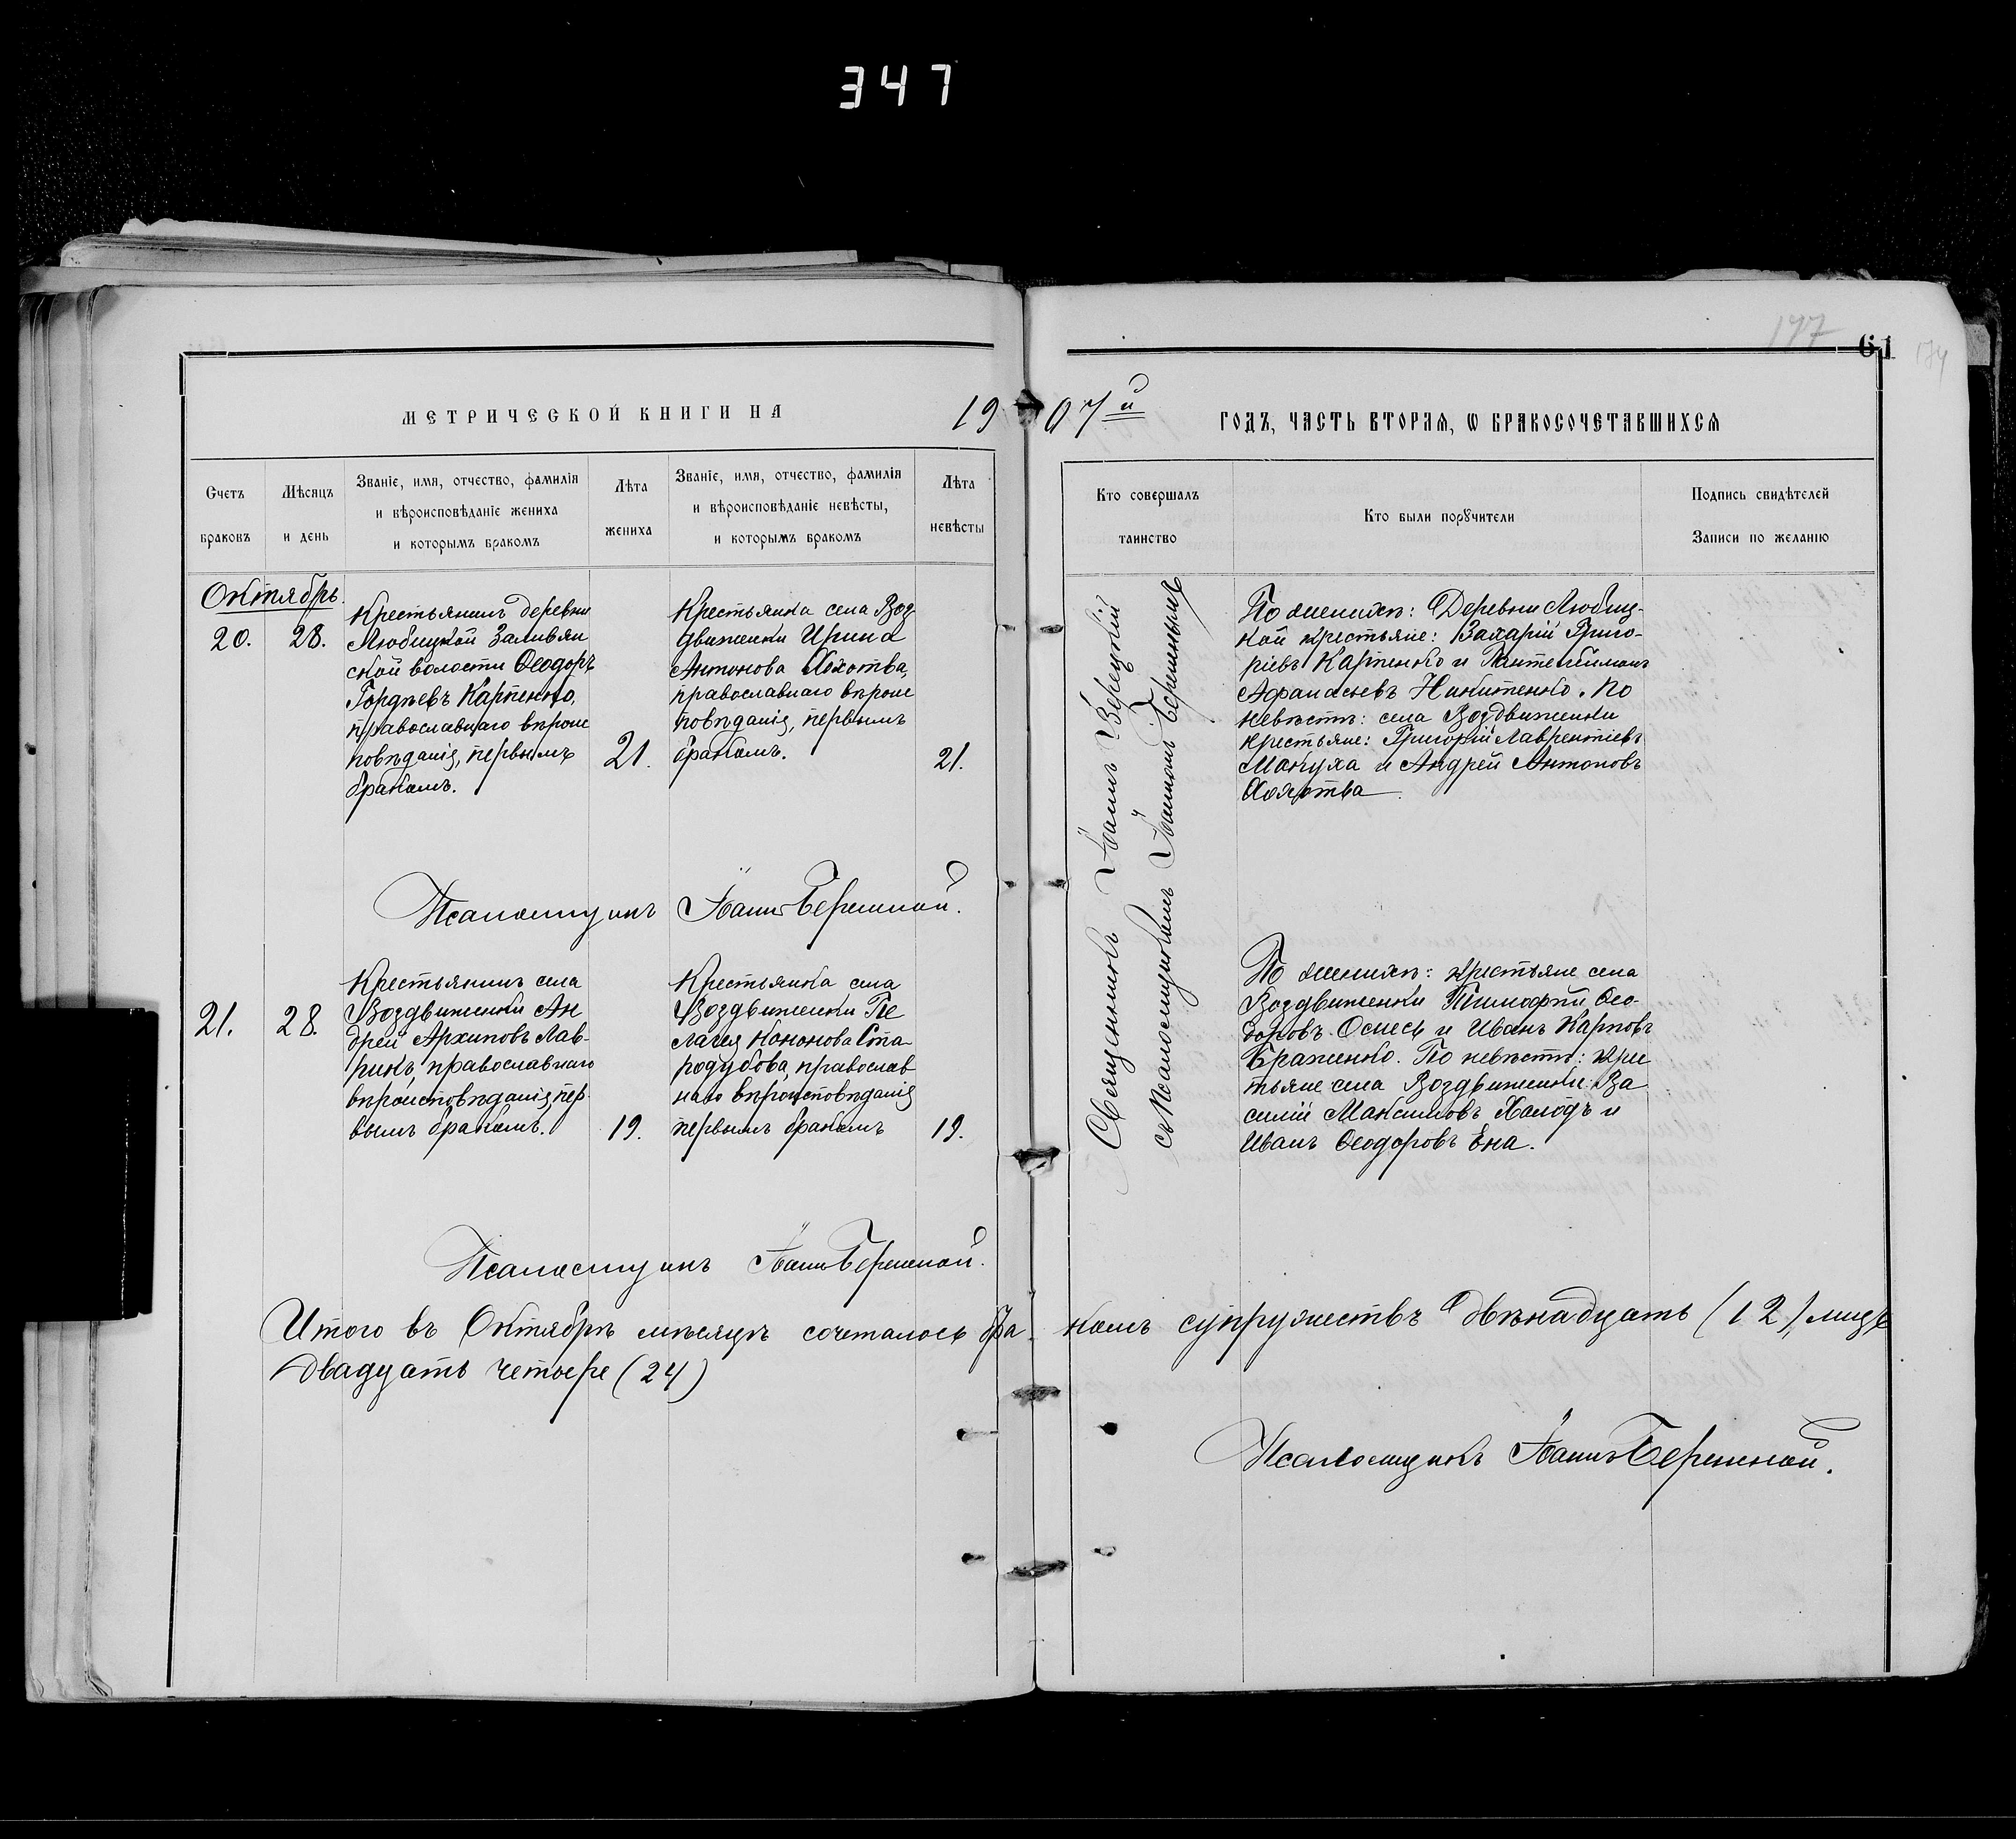 347
177
61
174
МЕТРИЧЕСКОЙ КНИГИ НА 19
07й ГОДЪ, ЧАСТЬ ВТОРАЯ, Ѡ БРАКОСОЧЕТАВШИХСѦ
Счетъ
браковъ
Мѣсяцъ
и день
Званіе, имя, отчество, фамилія
и вѣроисповѣданіе жениха
и которымъ бракомъ
Лѣта
жениха
Званіе, имя, отчество, фамилія
и вѣроисповѣданіе невѣсты,
и которымъ бракомъ
Лѣта
невѣсты
Кто совершалъ
таинство
Кто были порꙋчители
Подпись свидѣтелей
Записи по желанію
Октябрь.
20.
28.
Крестьянинъ деревни
Любицкой Заливян
ской волости Ѳеодоръ
Гордѣевъ Карпенко,
православнаго вѣроис
повѣданія, первымъ
бракомъ.
21.
Крестьянка села Воз
движенки Ирина
Антонова Хохотва,
православнаго вѣроис
повѣданія, первымъ
бракомъ.
21.
Священникъ Іоаннъ Верецкій
съ псаломщикомъ Іоанномъ Бережнымъ
По женихѣ: Деревни Любиц-
кой крестьяне: Захарій Григо-
ріевъ Карпенко и Пантелеймонъ
Аѳанасьевъ Никитенко. По
невѣстѣ: села Воздвиженки
крестьяне: Григорій Лаврентіевъ
Макуха и Андрей Антоновъ
Хохотва.
Псаломщикъ Іоаннъ Бережной.
21.
28.
Крестьянинъ села
Воздвиженки Ан
дрей Архиповъ Лав-
рикъ, православнаго
вѣроисповѣданія, пер-
вымъ бракомъ.
19.
Крестьянка села
Воздвиженки Пе
лагея Кононова Ста-
родубова, православ
наго вѣроисповѣданія
первымъ бракомъ
19.
По женихѣ: крестьяне села
Воздвиженки Тимоѳей Ѳео-
доровъ и Иванъ Карповъ
Браженко. По невѣстѣ: крес
тьяне села Воздвиженки: Ва
силій Максимовъ Холодъ и
Иванъ Ѳеодоровъ Ена.
Псаломщикъ Іоаннъ Бережной.
Итого въ Октябрѣ мѣсяцѣ сочеталось бра-
комъ супружествъ двѣнадцать (12), лицъ
двадцать четыре (24)
Псаломщикъ Іоаннъ Бережной.